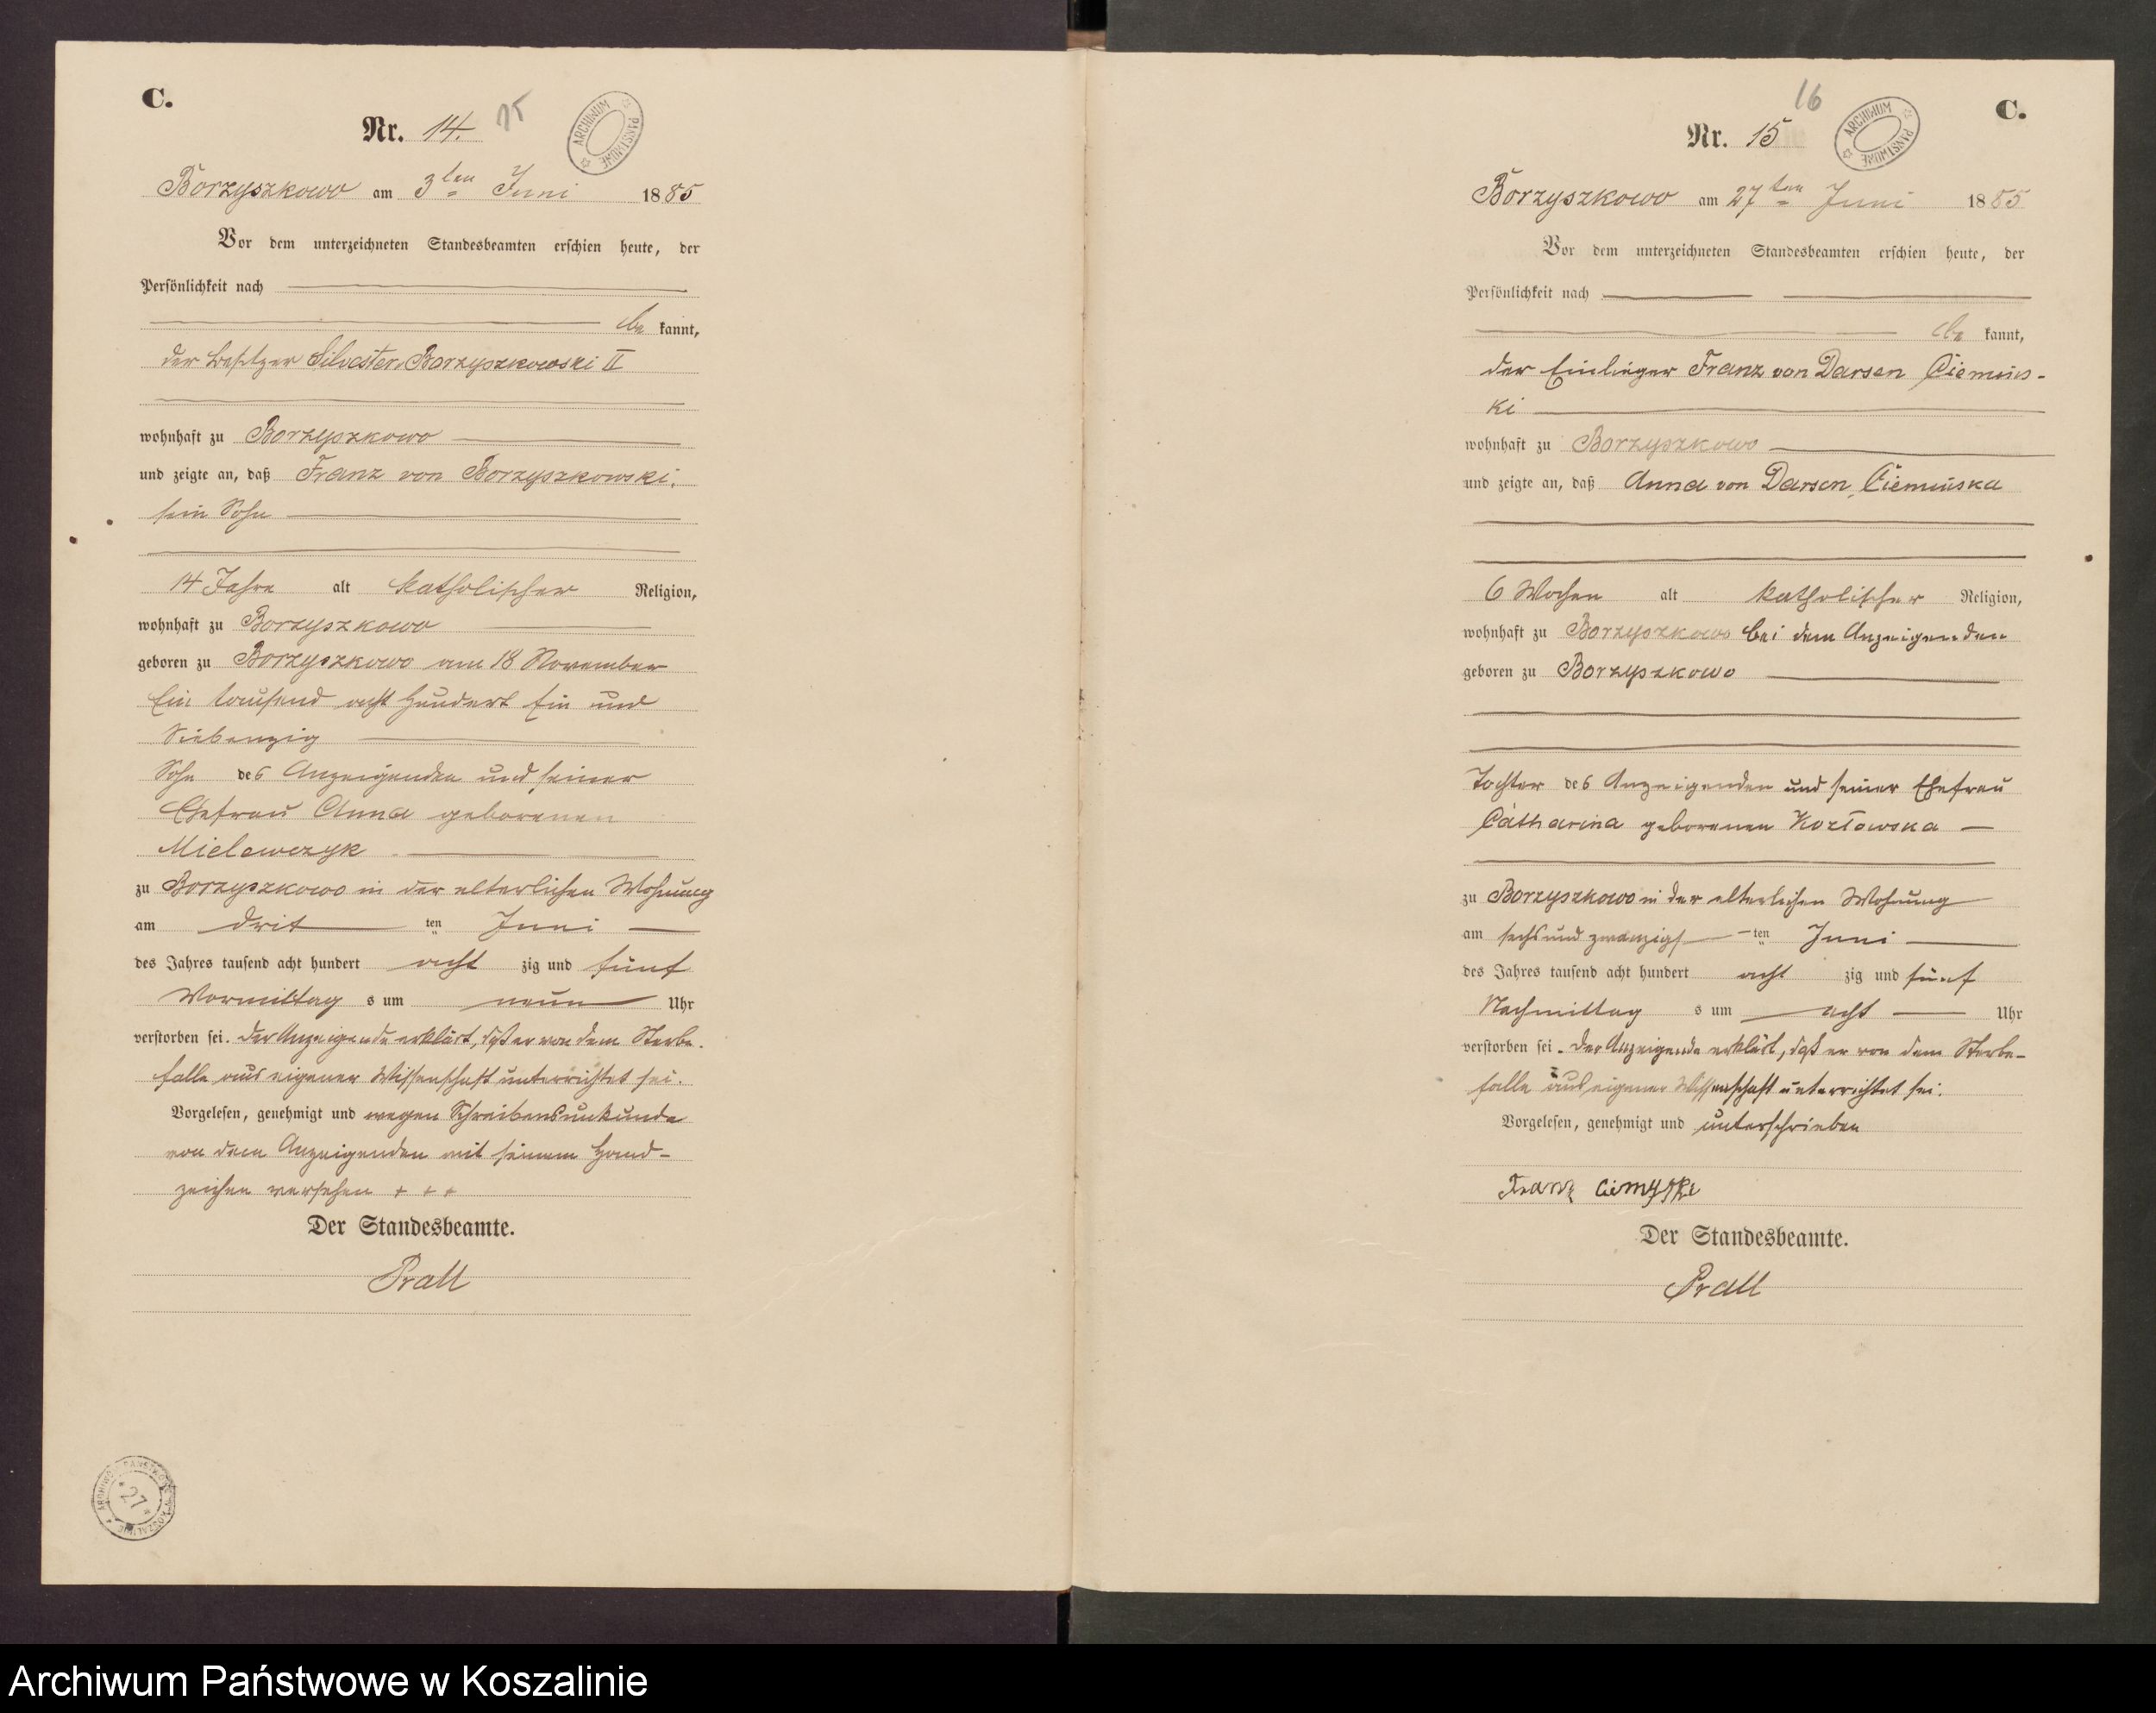 C.
Nr. 14. 15
ARCHIWUM PAŃSTWOWE
Borzyszkowo am 3ten Juni 1885
Vor dem unterzeichneten Standesbeamten erschien heute, der
Persönlichkeit nach
be kannt,
der Besitzer Silvester Borzyszkowski II
wohnhaft zu Borzyszkowo
und zeigte an, daß Franz von Borzyszkowski,
sein Sohn
14 Jahre alt katholischer Religion,
wohnhaft zu Borzyszkowo
geboren zu Borzyszkowo am 18 November
Ein tausend acht hundert Ein und
Siebenzig
Sohn des Anzeigenden und seiner
Ehefrau Anna geborenen
Mielewczyk
zu Borzyszkowo in der elterlichen Wohnung
am dritten Juni
des Jahres tausend acht hundert acht zig und fünf
Vormittag s um neun Uhr
verstorben sei. Der Anzeigende erklärt, daß er von dem Sterbe-
falle aus eigener Wissenschaft unterrichtet sei.
Vorgelesen, genehmigt und wegen Schreibensunkunde
von dem Anzeigenden mit seinem Hand-
zeichen versehen + + +
Der Standesbeamte.
Prall
ARCHIWUM PAŃSTWOWE W KOSZALINIE
* 27 *
16
C.
Nr. 15
ARCHIWUM PAŃSTWOWE
Borzyszkowo am 27ten Juni 1885
Vor dem unterzeichneten Standesbeamten erschien heute, der
Persönlichkeit nach
be kannt,
der Einlieger Franz von Darsen Ciemins-
ki
wohnhaft zu Borzyszkowo
und zeigte an, daß Anna von Darsen Ciemińska
6 Wochen alt katholischer Religion,
wohnhaft zu Borzyszkowo bei dem Anzeigenden
geboren zu Borzyszkowo
Tochter des Anzeigenden und seiner Ehefrau
Catharina geborenen Kozłowska
zu Borzyszkowo in der elterlichen Wohnung
am sechs und zwanzigsten Juni
des Jahres tausend acht hundert acht zig und fünf
Nachmittag s um acht Uhr
verstorben sei. Der Anzeigende erklärt, daß er von dem Sterbe-
falle aus eigener Wissenschaft unterrichtet sei.
Vorgelesen, genehmigt und unterschrieben
Franz Ciemyski
Der Standesbeamte.
Prall
Archiwum Państwowe w Koszalinie